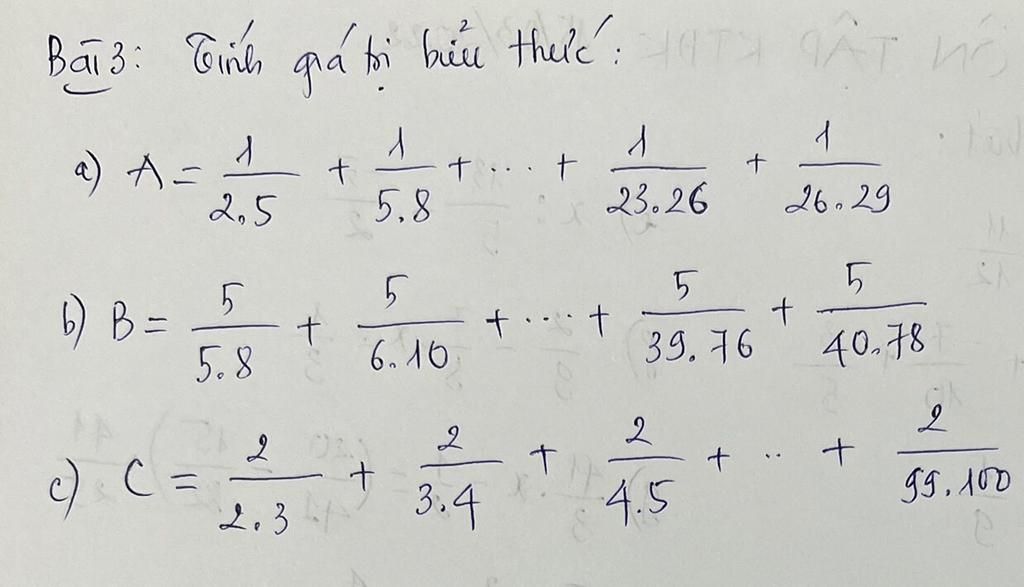 Bài 3: Tính giá trị biểu thức:
a) A = 1/2.5 + 1/5.8 + ... + 1/23.26 + 1/26.29
b) B = 5/5.8 + 5/6.10 + ... + 5/39.76 + 5/40.78
c) C = 2/2.3 + 2/3.4 + 2/4.5 + .. + 2/99.100